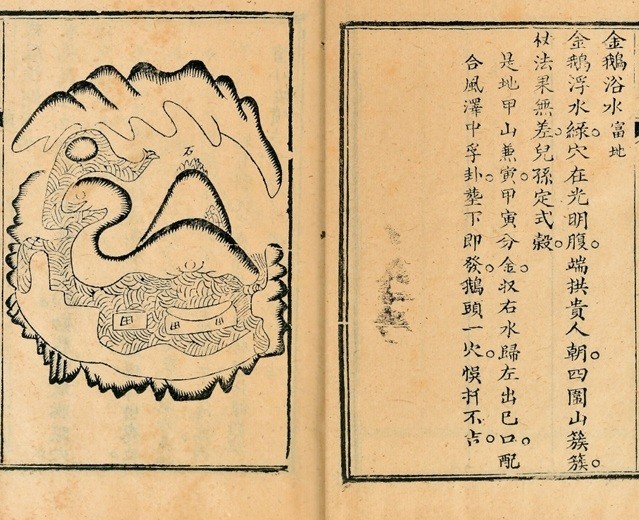 金鵝浴水 富地
金鵝浮水綠。穴在光明腹。端拱貴人朝。四圍山簇簇。
杖法果無差。兒孫定式穀。
是地甲山兼寅。甲寅分金。収右水歸左出巳口。配
合風澤中孚卦。塟下即發。鵝頭一穴。悞扦不吉。
石
田
田